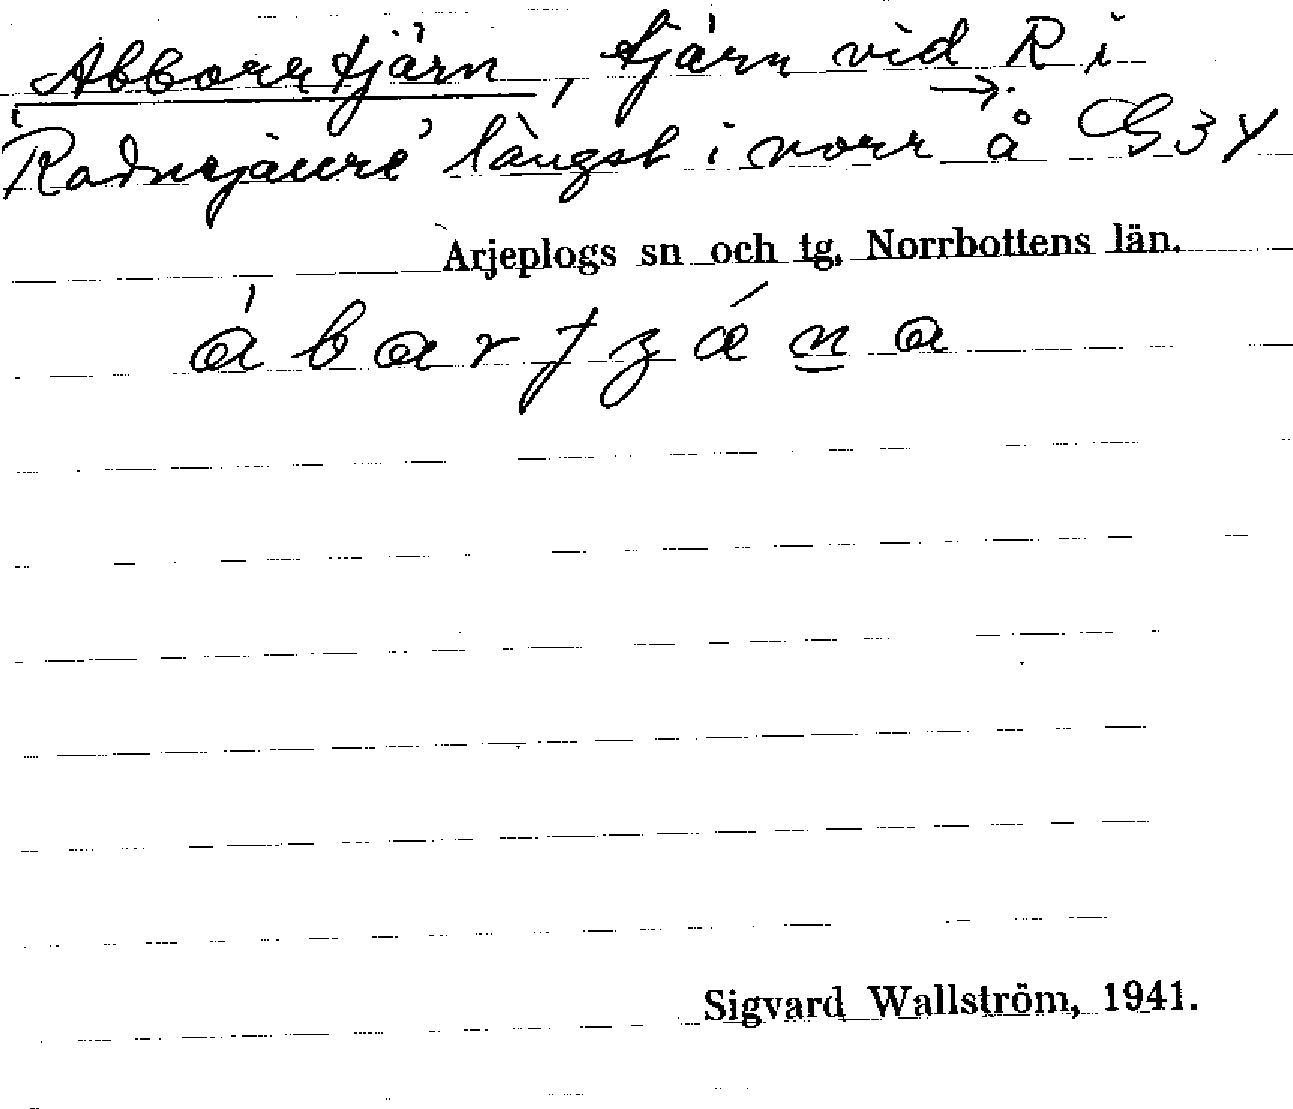 Abborrtjärn, tjärn vid R i
Radnejaure längst i norr å G34
Arjeplogs sn och tg, Norrbottens län.
Sigvard Wallström, 1941.